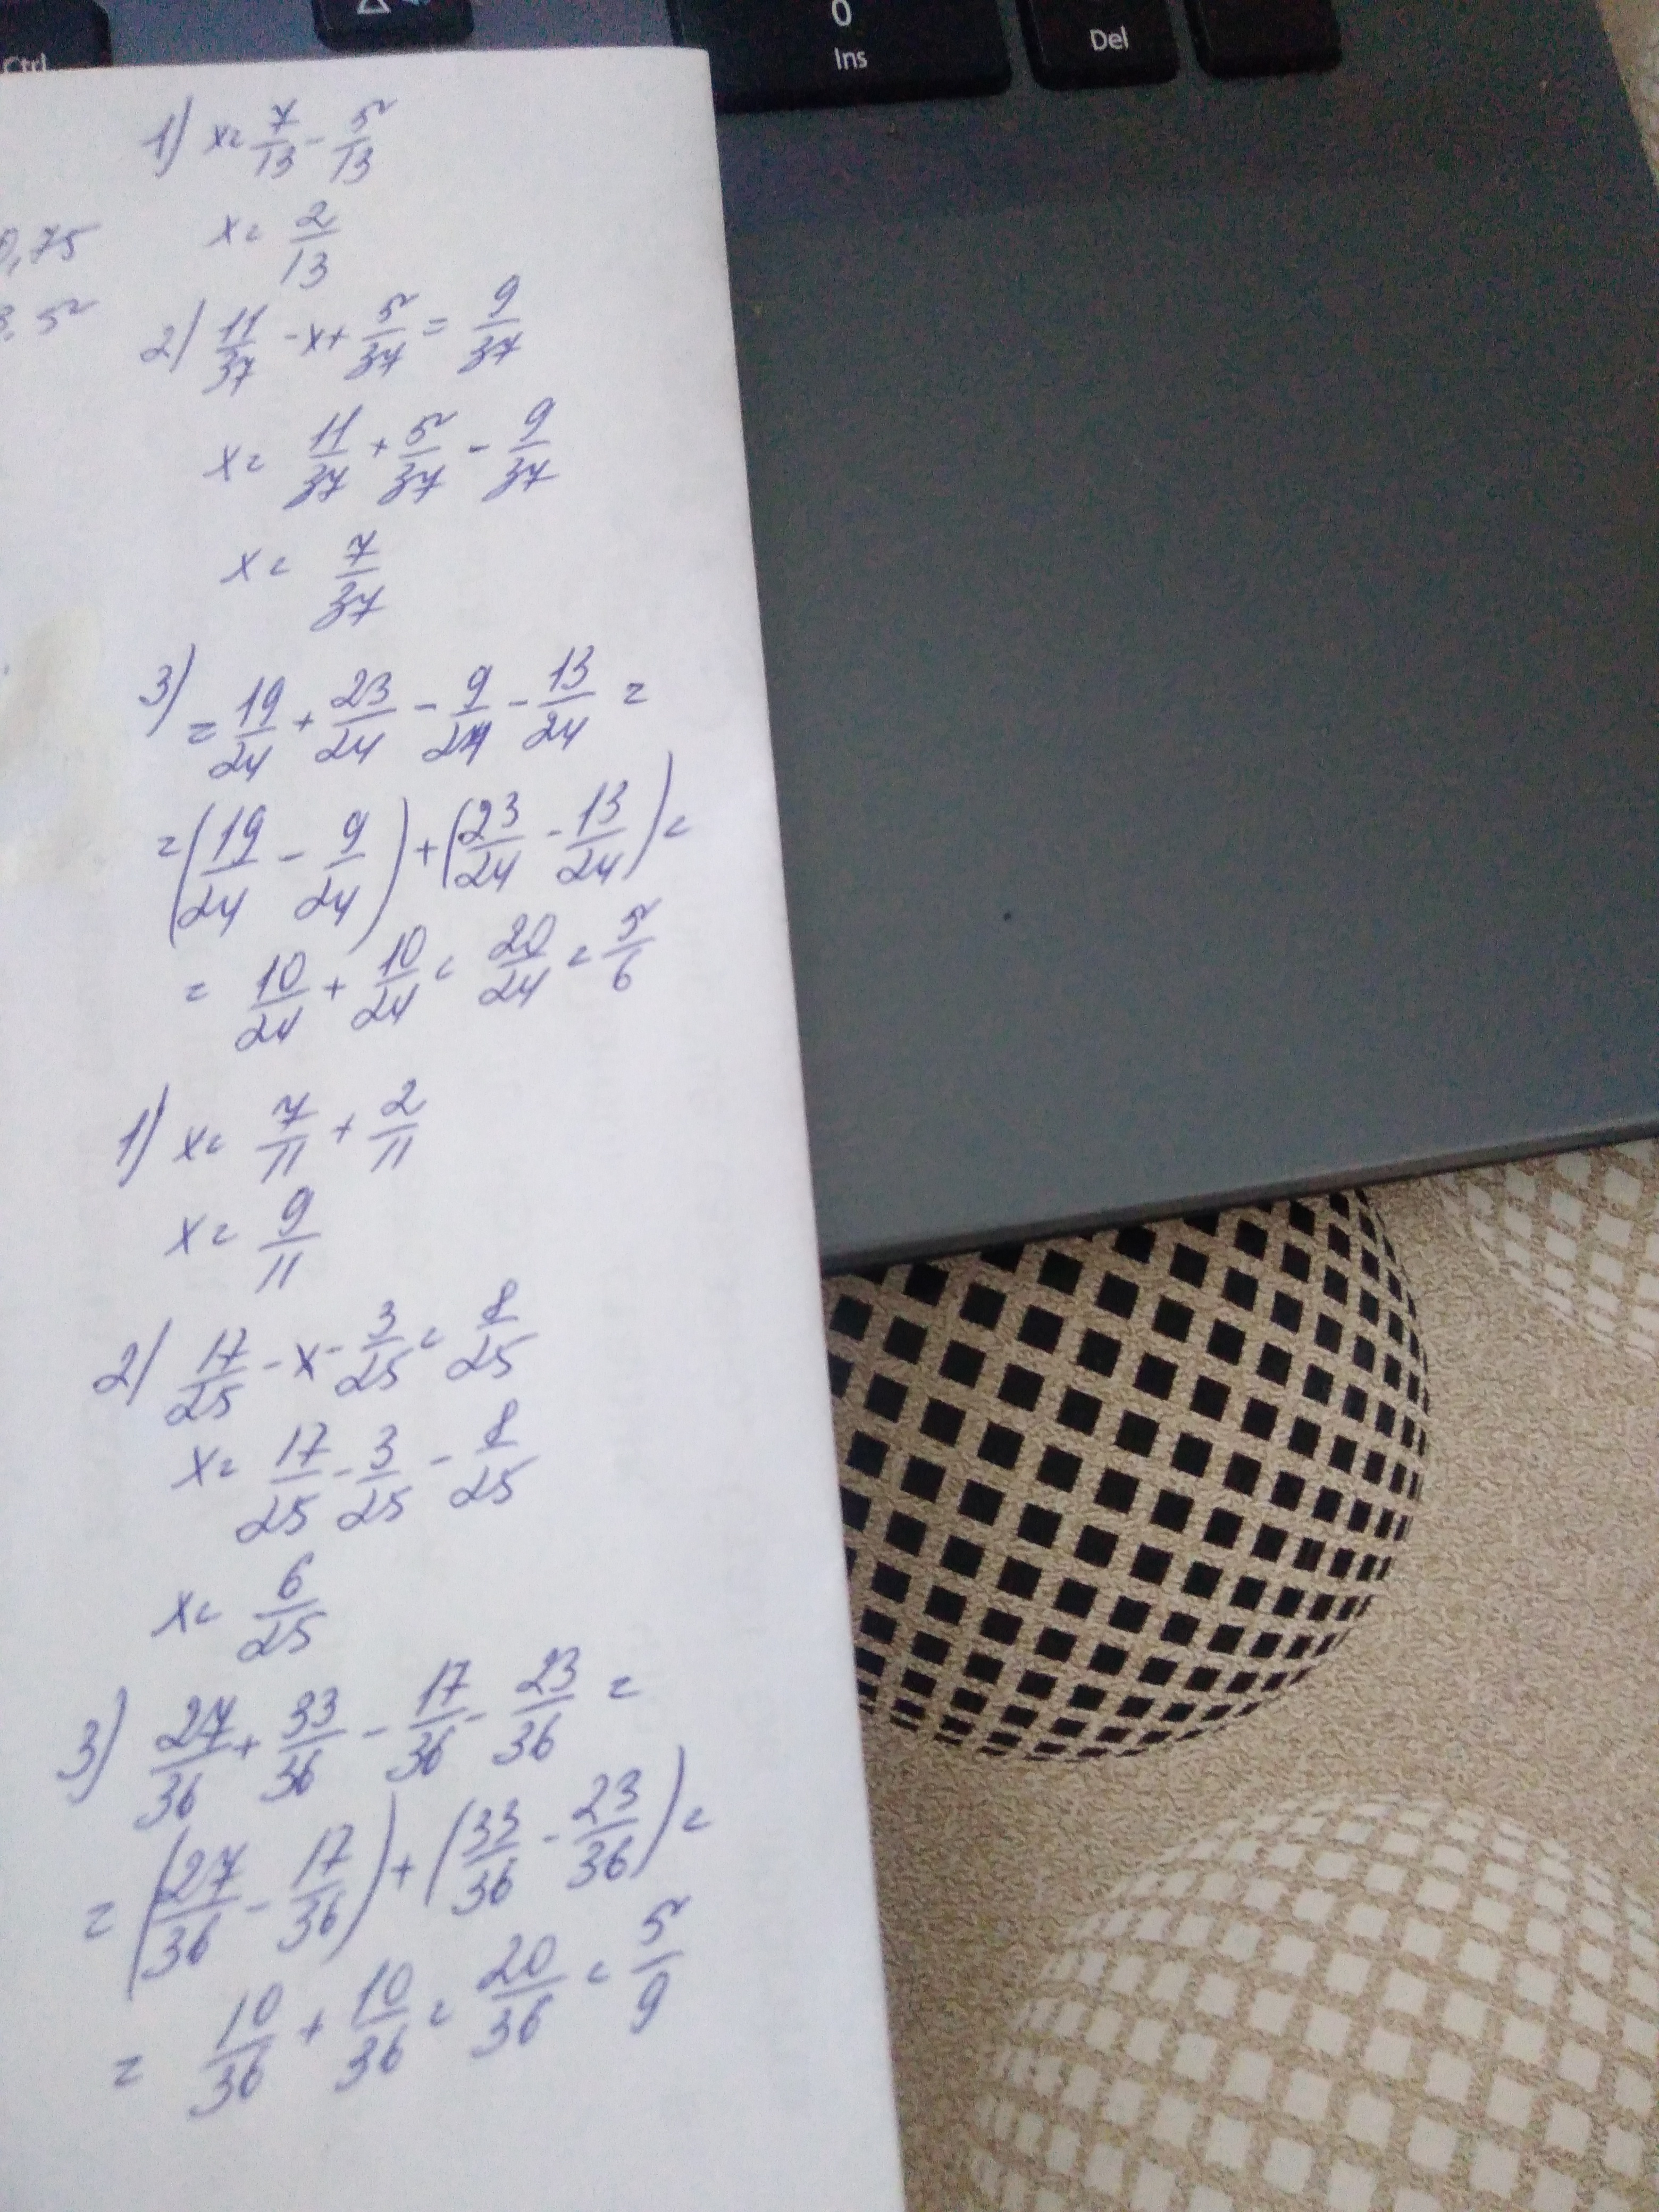 Ctrl
0
Ins
Del
1) x = 7/13 - 5/13
0,75
x = 2/13
3,5
2) 11/37 - x + 5/37 = 9/37
x = 11/37 + 5/37 - 9/37
x = 7/37
3) = 19/24 + 23/24 - 9/24 - 13/24 =
= (19/24 - 9/24) + (23/24 - 13/24) =
= 10/24 + 10/24 = 20/24 = 5/6
1) x = 7/11 + 2/11
x = 9/11
2) 17/25 - x - 3/25 = 8/25
x = 17/25 - 3/25 - 8/25
x = 6/25
3) 27/36 + 33/36 - 17/36 - 23/36 =
= (27/36 - 17/36) + (33/36 - 23/36) =
= 10/36 + 10/36 = 20/36 = 5/9